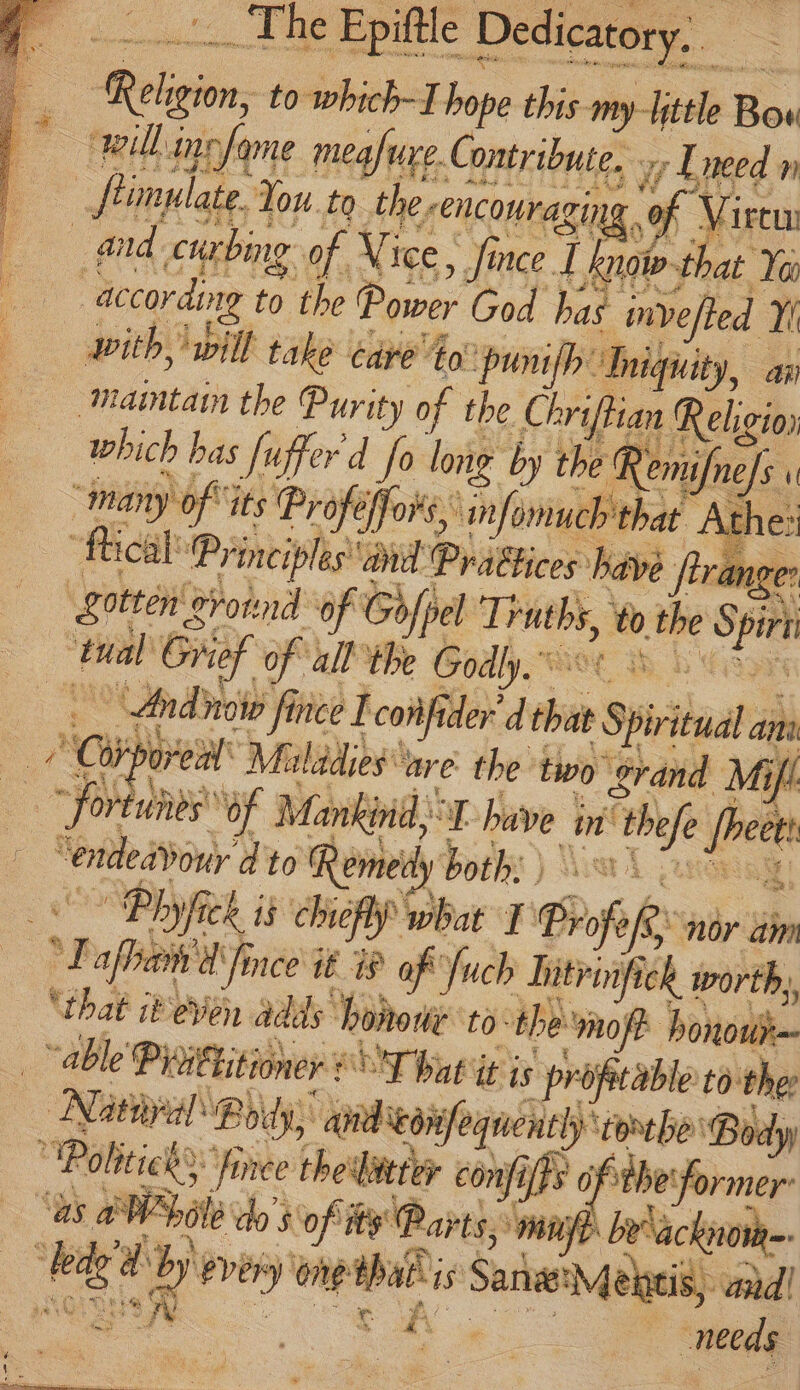 The Epiſtle Dedicatory.
Religion, to which I hope this my little Boo
will in ſome meaſure Contribute. I need n
ſtimulate You to the encouraging of Virtu
and curbing of Vice, ſince I know that Yo
according to the Power God has inveſted Y
with, will take care to puniſh Iniquity, an
maintain the Purity of the Chriſtian Religion
which has ſuffer'd ſo long by the Remiſneſs
many of its Profeſſors, inſomuch that Athei
ſtical Principles and Practices have ſtrange
gotten ground of Goſpel Truths, to the Spiri
tual Grief of all the Godly.
And now ſince I conſider'd that Spiritual an
Corporeal Maladies are the two grand Miſ
fortunes of Mankind, I have in theſe ſheet
endeavour'd to Remedy both.
Phyſick is chiefly what I Profeſs, nor am
I aſham'd ſince it is of ſuch Intrinſick worth,
that it even adds honour to the moſt honour-
able Practitioner: That it is profitable to the
Natural Body, and conſequently to the Body
Politick, ſince the latter conſiſts of the former
as a Whole do's of its Parts, muſt be acknow-
ledg'd by every one that is Sanæ Mentis, and
A
needs